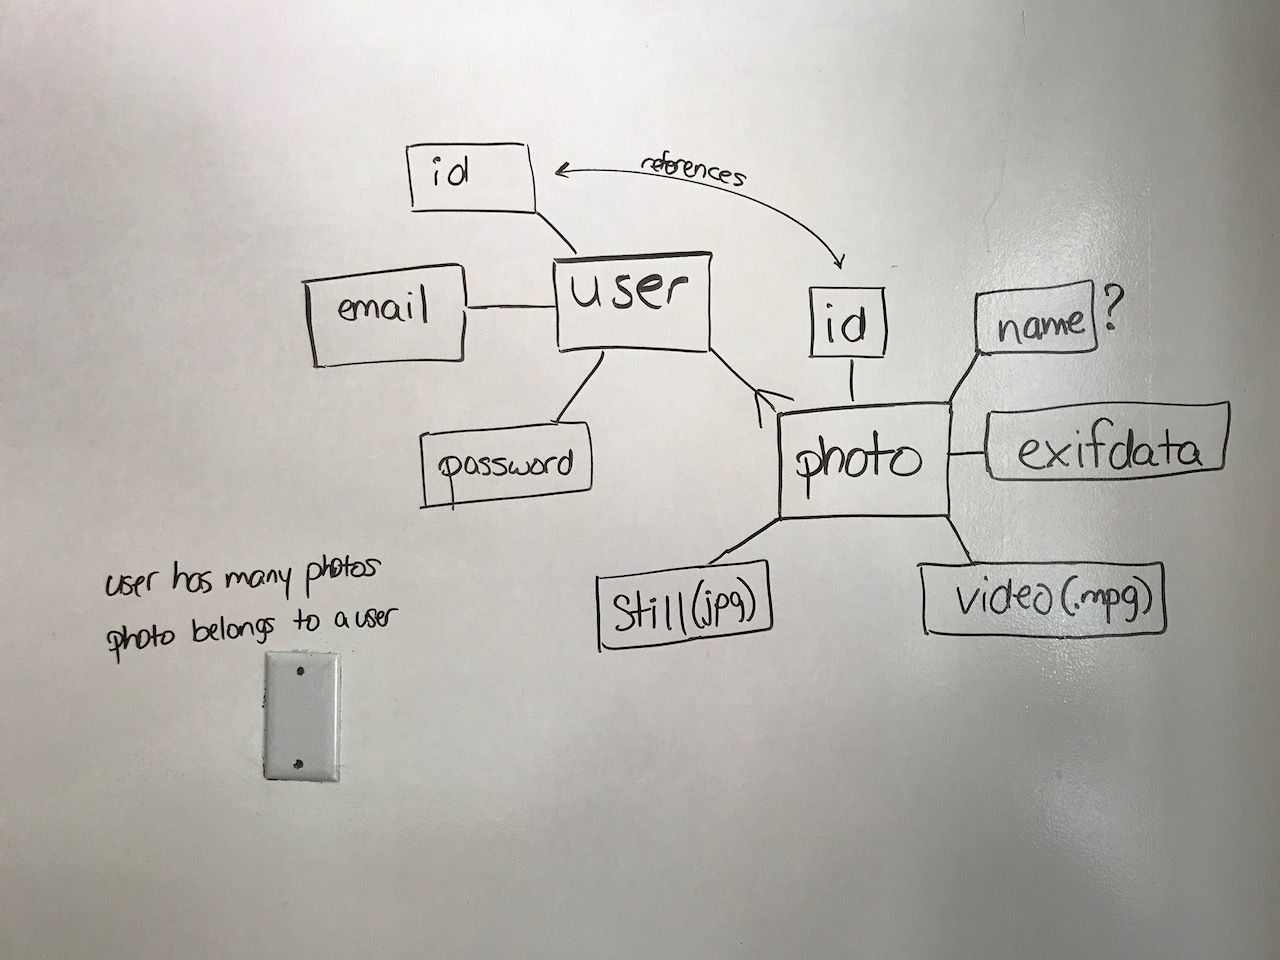 id
references
user
email
id
name?
password
photo
exifdata
still(jpg)
video(.mpg)
user has many photos
photo belongs to a user